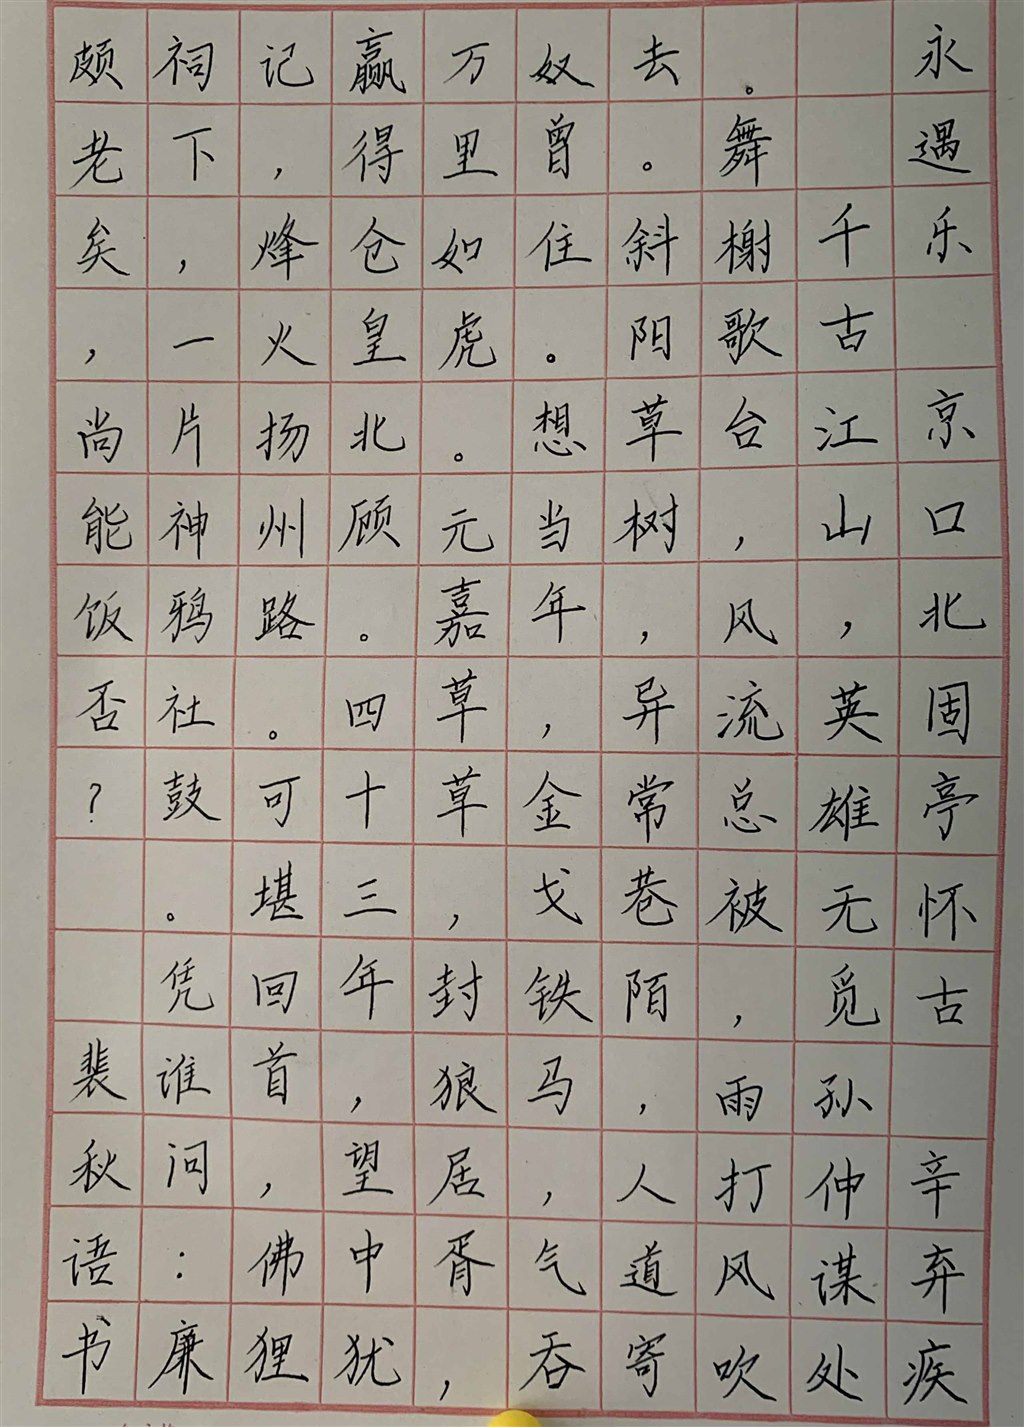 永遇乐 京口北固亭怀古 辛弃疾
千古江山，英雄无觅孙仲谋处
。舞榭歌台，风流总被，雨打风吹
去。斜阳草树，异常巷陌，人道寄
奴曾住。想当年，金戈铁马，气吞
万里如虎。元嘉草草，封狼居胥，
赢得仓皇北顾。四十三年，望中犹
记，烽火扬州路。可堪回首，佛狸
祠下，一片神鸦社鼓。凭谁问：廉
颇老矣，尚能饭否？ 裴秋语书